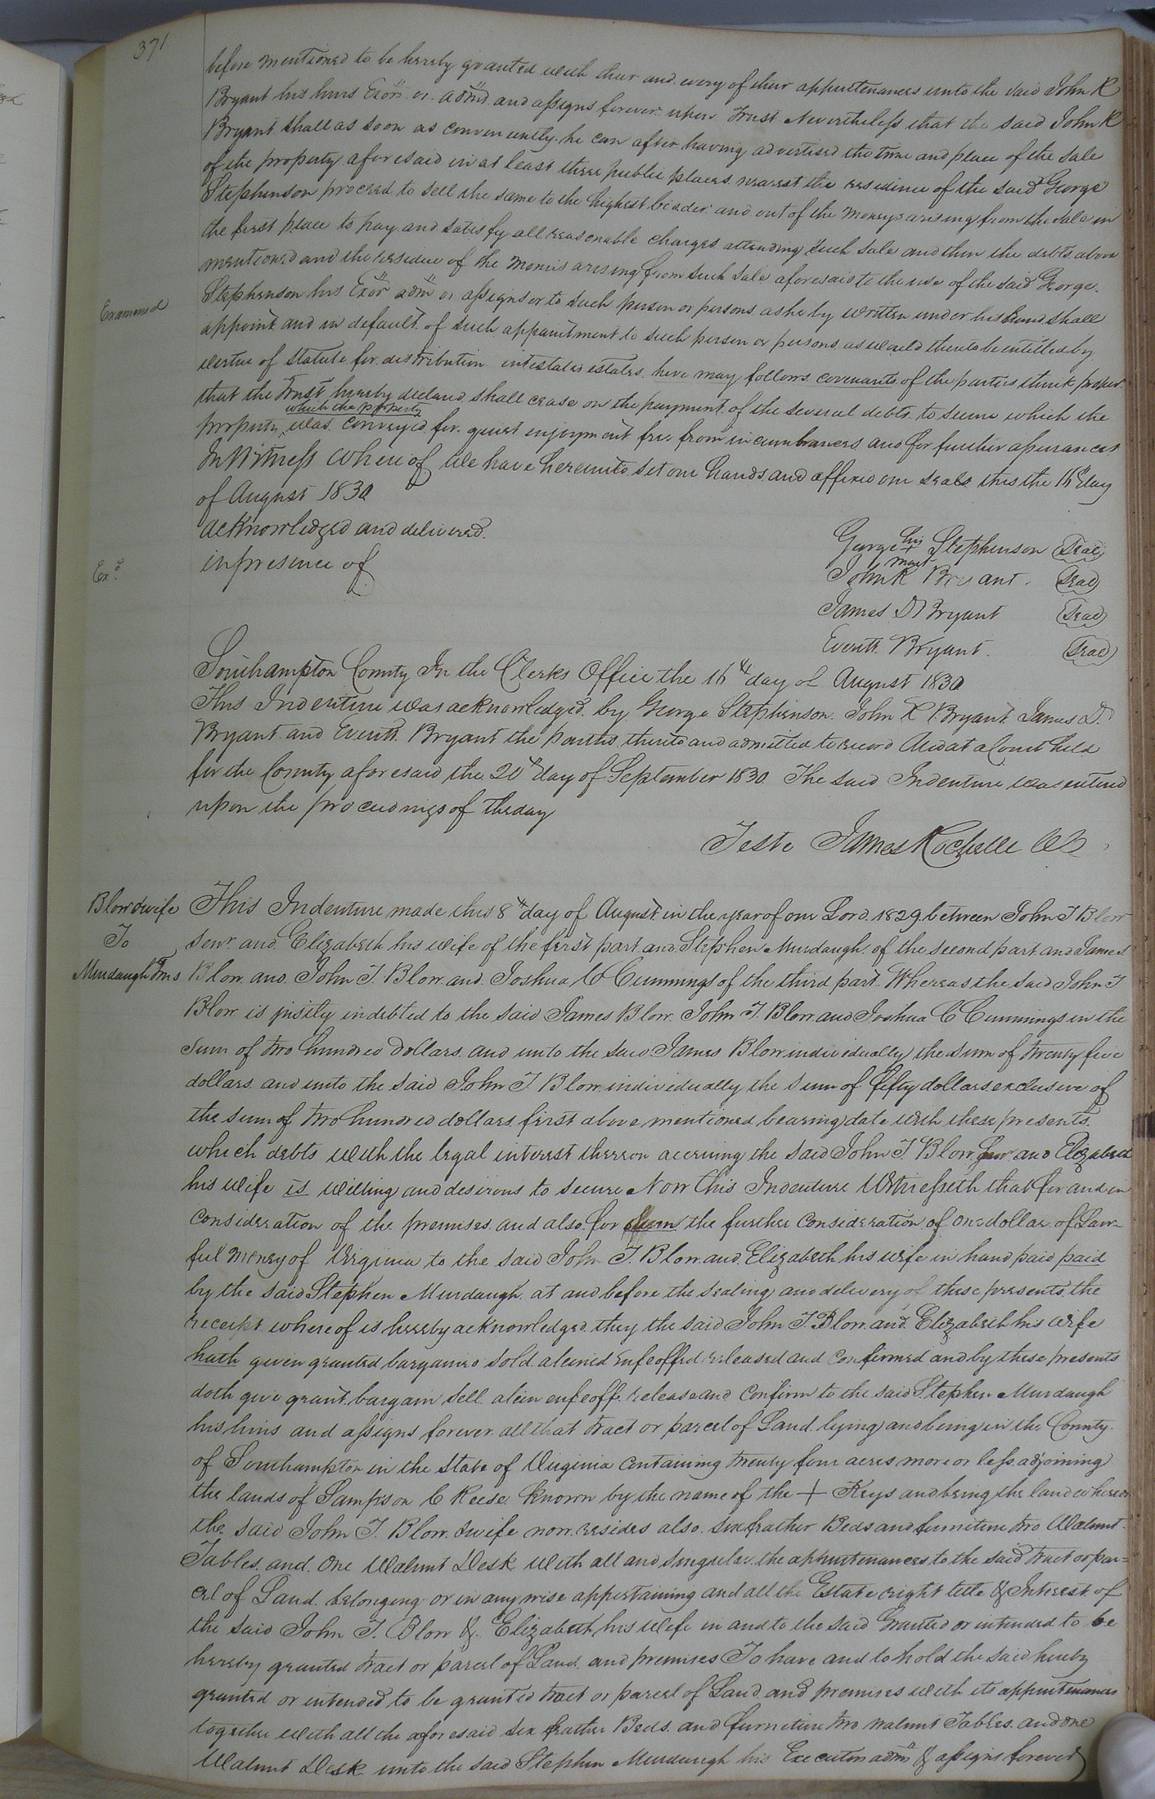 371
before mentioned to be hereby granted with their and every of their appurtenances unto the said John R
Bryant his heirs Exor. or admd. and assigns forever upon Trust Nevertheless that the said John R
Bryant shall as soon as conveniently he can after having advertised the time and place of the sale
of the property aforesaid in at least three public places nearest the residence of the said George
Stephenson proceed to sell the same to the highest bidder and out of the moneys arising from the sale in
the first place to pay and satisfy all reasonable charges attending such sale and then the debts above
mentioned and the residue of the monies arising from such sale aforesaid to the use of the said George
Examined
Stephenson his Exor admr or assigns or to such person or persons as he by written under his hand shall
appoint and in default of such appointment to such person or persons as would thereto be entitled by
vertue of Statute for distribution intestates estates here may follow covenants of the parties think proper
that the Trust hereby declared shall cease on the payment of the several debts to secure which the
which the property
property was conveyed for quiet enjoyment free from incumbrances and for further assurances
In Witness Whereof We have hereunto set our hands and affixed our seals this the 16th day
of August 1830
acknowledged and delivered
in presence of
Exd.
George his + mark Stephenson (Seal)
John R Bryant. (Seal)
James D Bryant (Seal)
Everitt Bryant. (Seal)
Southampton County In the Clerks Office the 16th day of August 1830
This Indenture was acknowledged by George Stephenson. John R Bryant James D.
Bryant and Everitt Bryant the parties thereto and admitted to record And at a Court held
for the County aforesaid the 20th day of September 1830 The said Indenture was entered
upon the proceedings of the day
Teste James Rochelle CC
Blow & wife
To
Murdaugh Trus
This Indenture made this 8th day of August in the year of our Lord 1829 between John T Blow
Senr. and Elizabeth his wife of the first part and Stephen Murdaugh of the second part and James
Blow and John T. Blow and Joshua C Cummings of the third part. Whereas the said John T
Blow is justly indebted to the said James Blow John T. Blow and Joshua C Cummings in the
Sum of two hundred dollars and unto the said James Blow individually the sum of twenty five
dollars and unto the said John T Blow individually the sum of fifty dollars exclusive of
the sum of two hundred dollars first above mentioned bearing date with these presents.
which debts with the legal interest thereon accruing the said John T Blow Senr and Elizabeth
his wife is willing and desirous to secure Now this Indenture Witnesseth that for and in
consideration of the premises and also for the further consideration of one dollar of Law=
ful money of Virginia to the said John T. Blow and Elizabeth his wife in hand paid paid
by the said Stephen Murdaugh at and before the sealing and delivery of these presents the
receipt whereof is hereby acknowledged they the said John T. Blow and Elizabeth his wife
hath given granted bargained sold aliened enfeoffed released and confirmed and by these presents
doth give grant bargain sell alein enfeoff release and confirm to the said Stephen Murdaugh
his heirs and assigns forever all that tract or parcel of Land lying and being in the County
of Southampton in the State of Virginia containing twenty four acres more or less adjoining
the lands of Sampson C Reese known by the name of the + Keys and being the land whereon
the said John T. Blow & wife now resides also six feather Beds and furniture two Walnut
Tables and One Walnut Desk With all and singular the appurtenances to the said tract or par=
cel of Land belonging or in any wise appertaining and all the Estate right title & Interest of
the said John T. Blow & Elizabeth his wife in and to the said Granted or intended to be
hereby granted tract or parcel of Land and premises To have and to hold the said hereby
granted or intended to be granted tract or parcel of Land and premises with its appurtenances
together with all the aforesaid six feather Beds and furniture two walnut Tables and one
Walnut Desk unto the said Stephen Murdaugh his Executor admr & assigns forever